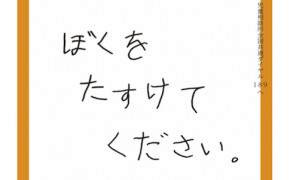 ぼくを
たすけて
ください。
児童相談所全国共通ダイヤル
189へ